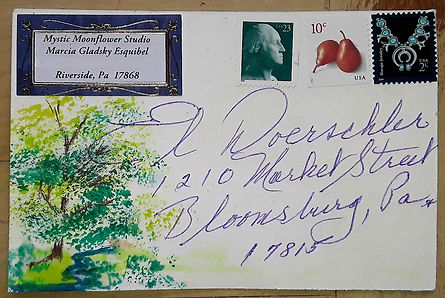 Mystic Moonflower Studio
Marcia Gladsky Esquibel
Riverside, Pa 17868
USA 23
10c
USA
USA 2c
Al Doerschler
1210 Market Street
Bloomsburg, Pa
17815